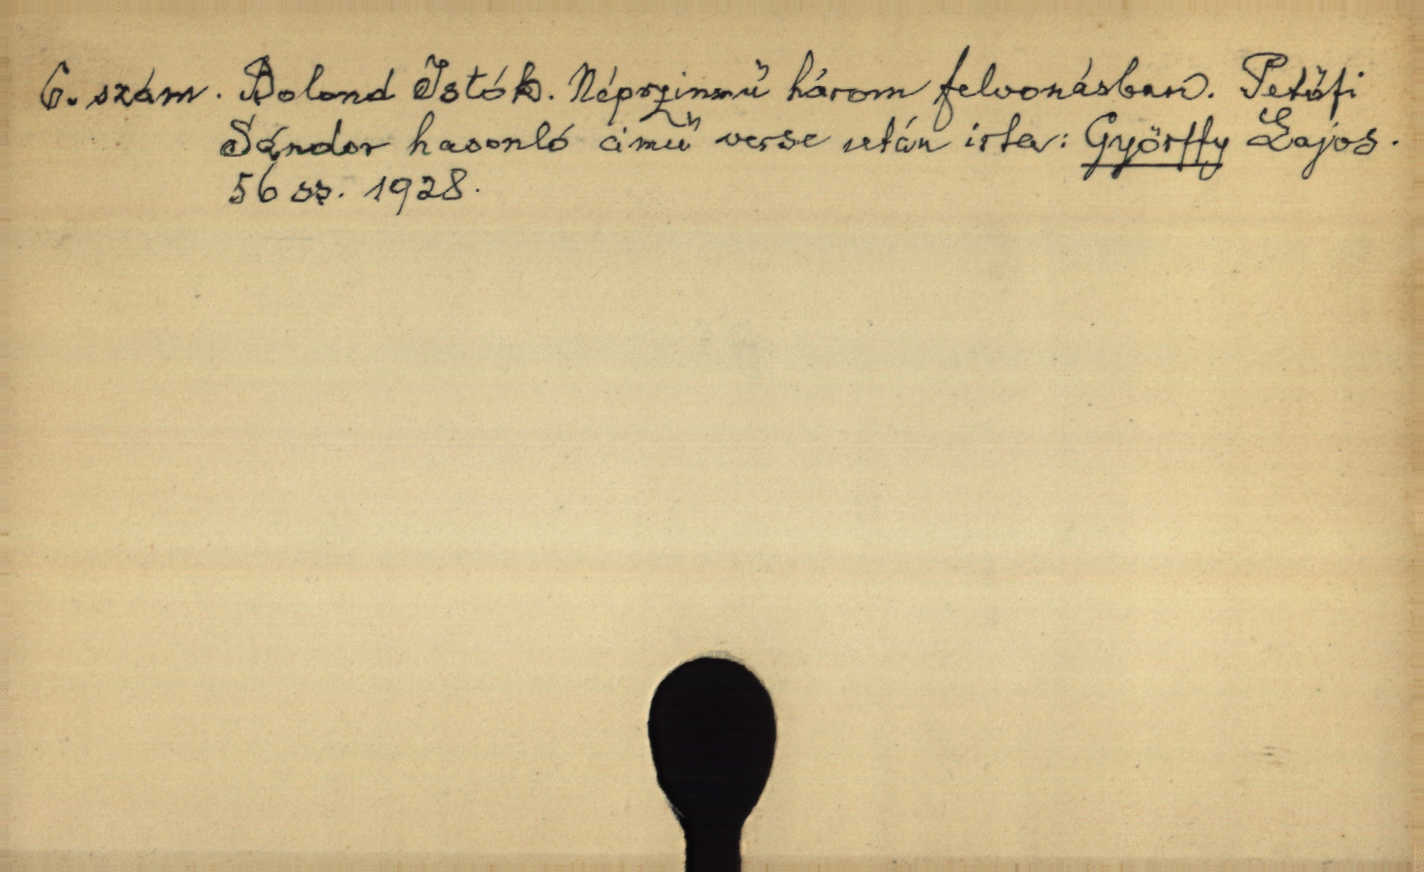 6. szám. Bolond Istók. Népszinmű három felvonásban. Petőfi
Sándor hasonló cimű verse után irta: Györffy Lajos.
56 sz. 1928.